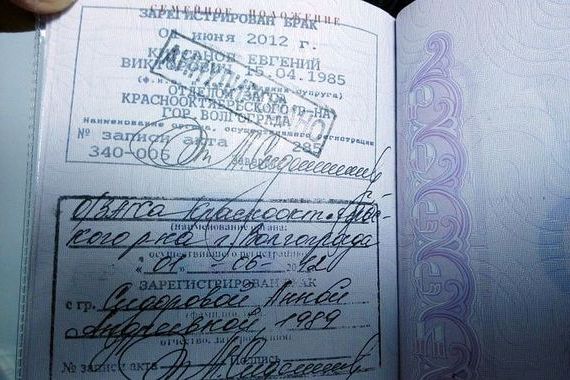 СЕМЕЙНОЕ ПОЛОЖЕНИЕ
ЗАРЕГИСТРИРОВАН БРАК
01 ИЮНЯ 2012 г.
ЕВГЕНИЙ
15.04.1985
ОТДЕЛОМ
КРАСНООКТЯБРЬСКОГО Р-НА
ГОР. ВОЛГОГРАДА
Наименование органа, осуществившего регистрацию
№ записи акта 285
340-006
ОЗАГСа Краснооктябрьс-
кого р-на г. Волгограда
(наименование органа:
осуществившего регистрацию)
"01" 06 2012
ЗАРЕГИСТРИРОВАН БРАК
с гр. Сидоровой Анной
Андреевной, 1989
отчество, дата рождения
№ записи акта Подпись